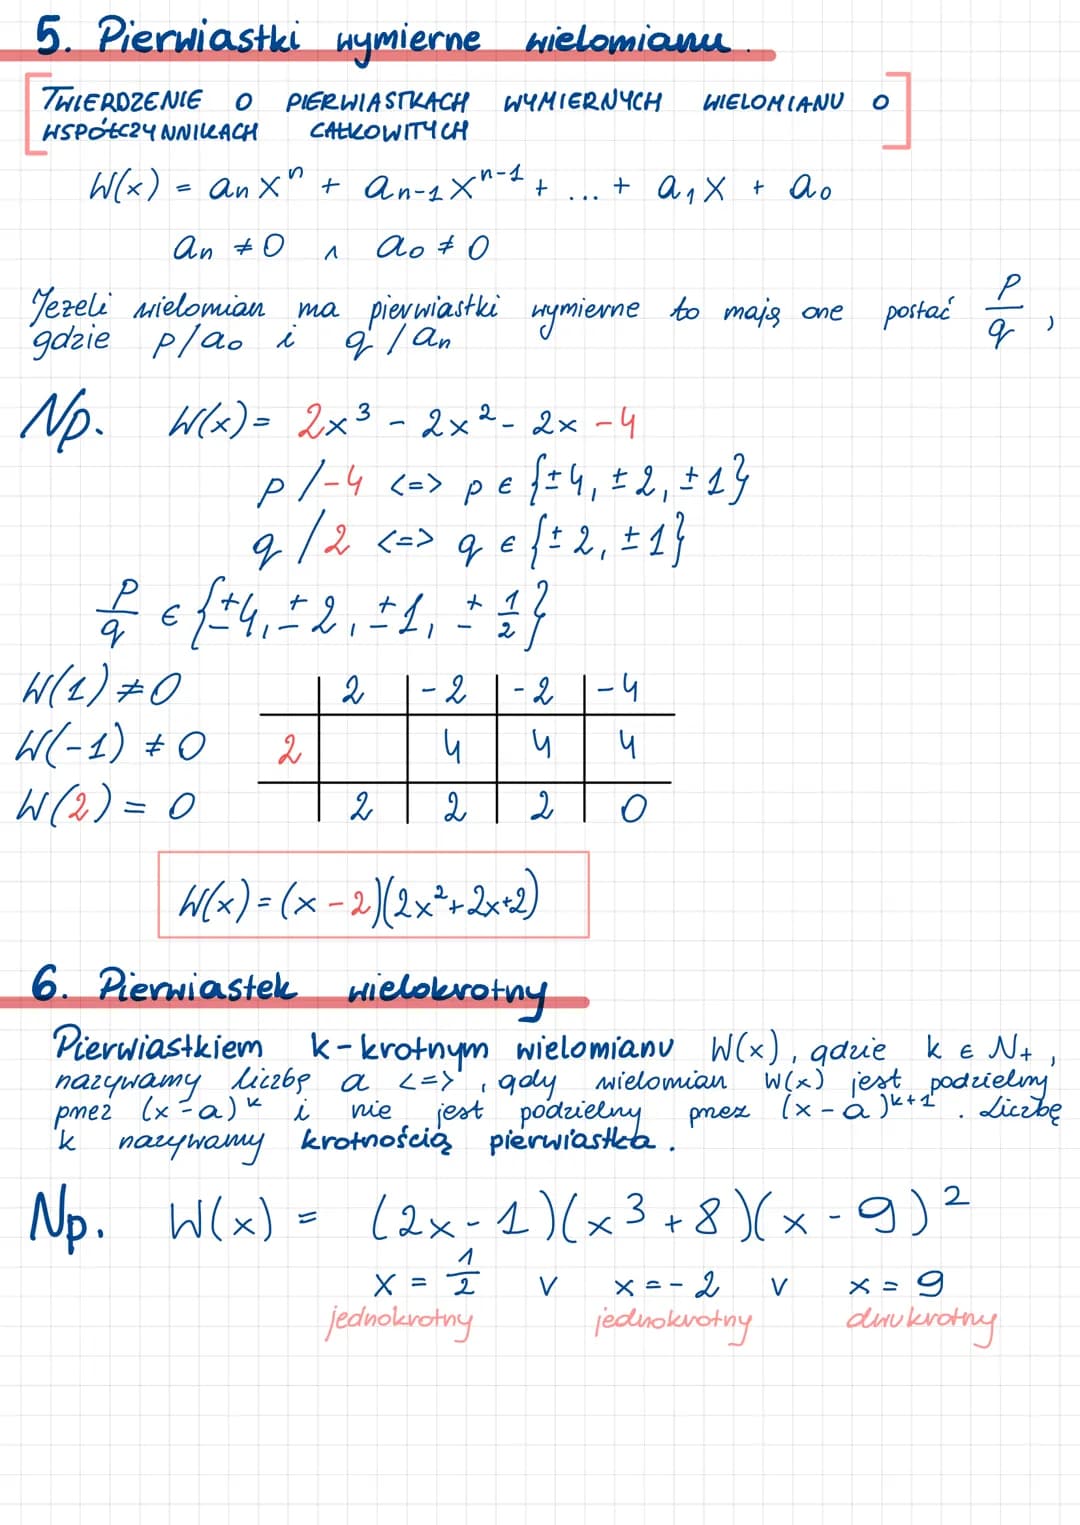 5. Pierwiastki wymierne wielomianu.
TWIERDZENIE O PIERWIASTKACH WYMIERNYCH WIELOMIANU O
WSPÓŁCZYNNIKACH CAŁKOWITYCH
W(x) = aₙxⁿ + aₙ₋₁xⁿ⁻¹ + ... + a₁x + a₀
aₙ ≠ 0 ∧ a₀ ≠ 0
Jeżeli wielomian ma pierwiastki wymierne to mają one postać p/q,
gdzie p/a₀ i q/aₙ
Np. W(x) = 2x³ - 2x² - 2x - 4
p/-4 <=> p ∈ {±4, ±2, ±1}
q/2 <=> q ∈ {±2, ±1}
p/q ∈ {±4, ±2, ±1, ±1/2}
W(1) ≠ 0
W(-1) ≠ 0
W(2) = 0
2 | -2 | -2 | -4
2 | 4 | 4 | 4
2 | 2 | 2 | 0
W(x) = (x - 2)(2x²+2x+2)
6. Pierwiastek wielokrotny
Pierwiastkiem k-krotnym wielomianu W(x), gdzie k ∈ N+,
nazywamy liczbę a <=>, gdy wielomian W(x) jest podzielny
przez (x-a)ᵏ i nie jest podzielny przez (x-a)ᵏ⁺¹. Liczbę
k nazywamy krotnością pierwiastka.
Np. W(x) = (2x-1)(x³+8)(x-9)²
x = 1/2 v x = -2 v x = 9
jednokrotny jednokrotny dwukrotny